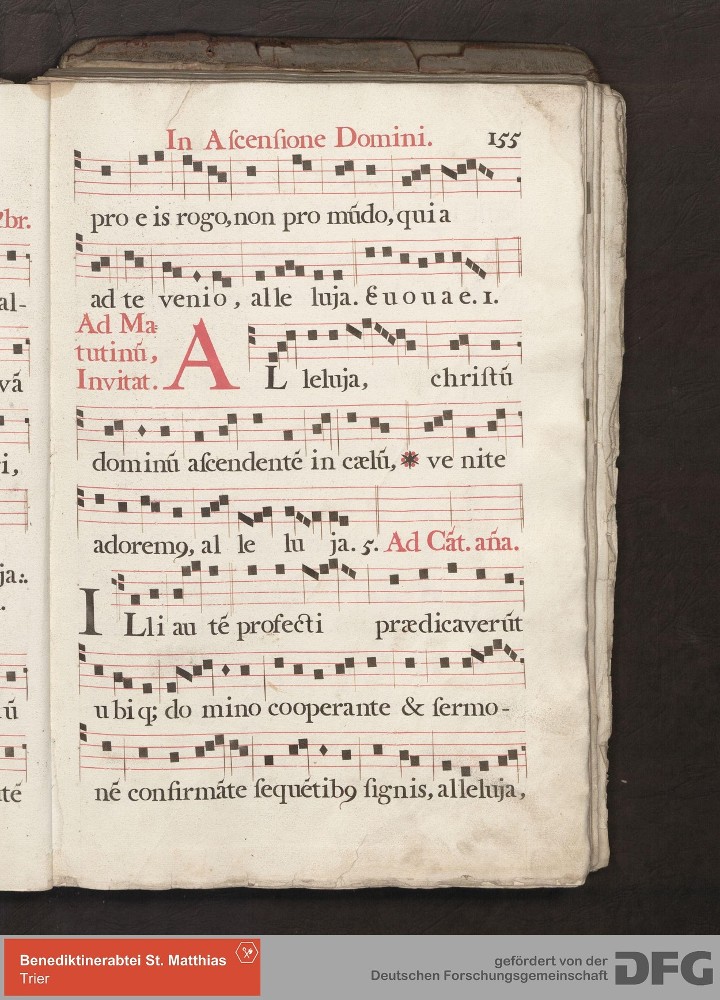 In Aſcenſione Domini. 155
pro e is rogo, non pro mũdo, qui a
ad te venio, alle luja. Euouae. 1.
Ad Ma
tutinũ,
Invitat.
A L leluja, chriſtũ
dominũ aſcendentẽ in cælũ, * ve nite
adorem9, al le lu ja. 5. Ad Cãt. aña.
I Lli au tẽ profecti prædicaverũt
ubiq; do mino cooperante & ſermo-
nẽ confirmãte ſequẽtib9 ſignis, alleluja,
2br.
al-
vã
ri,
ja:.
ũ
tẽ
Benediktinerabtei St. Matthias
Trier
gefördert von der
Deutschen Forschungsgemeinschaft
DFG